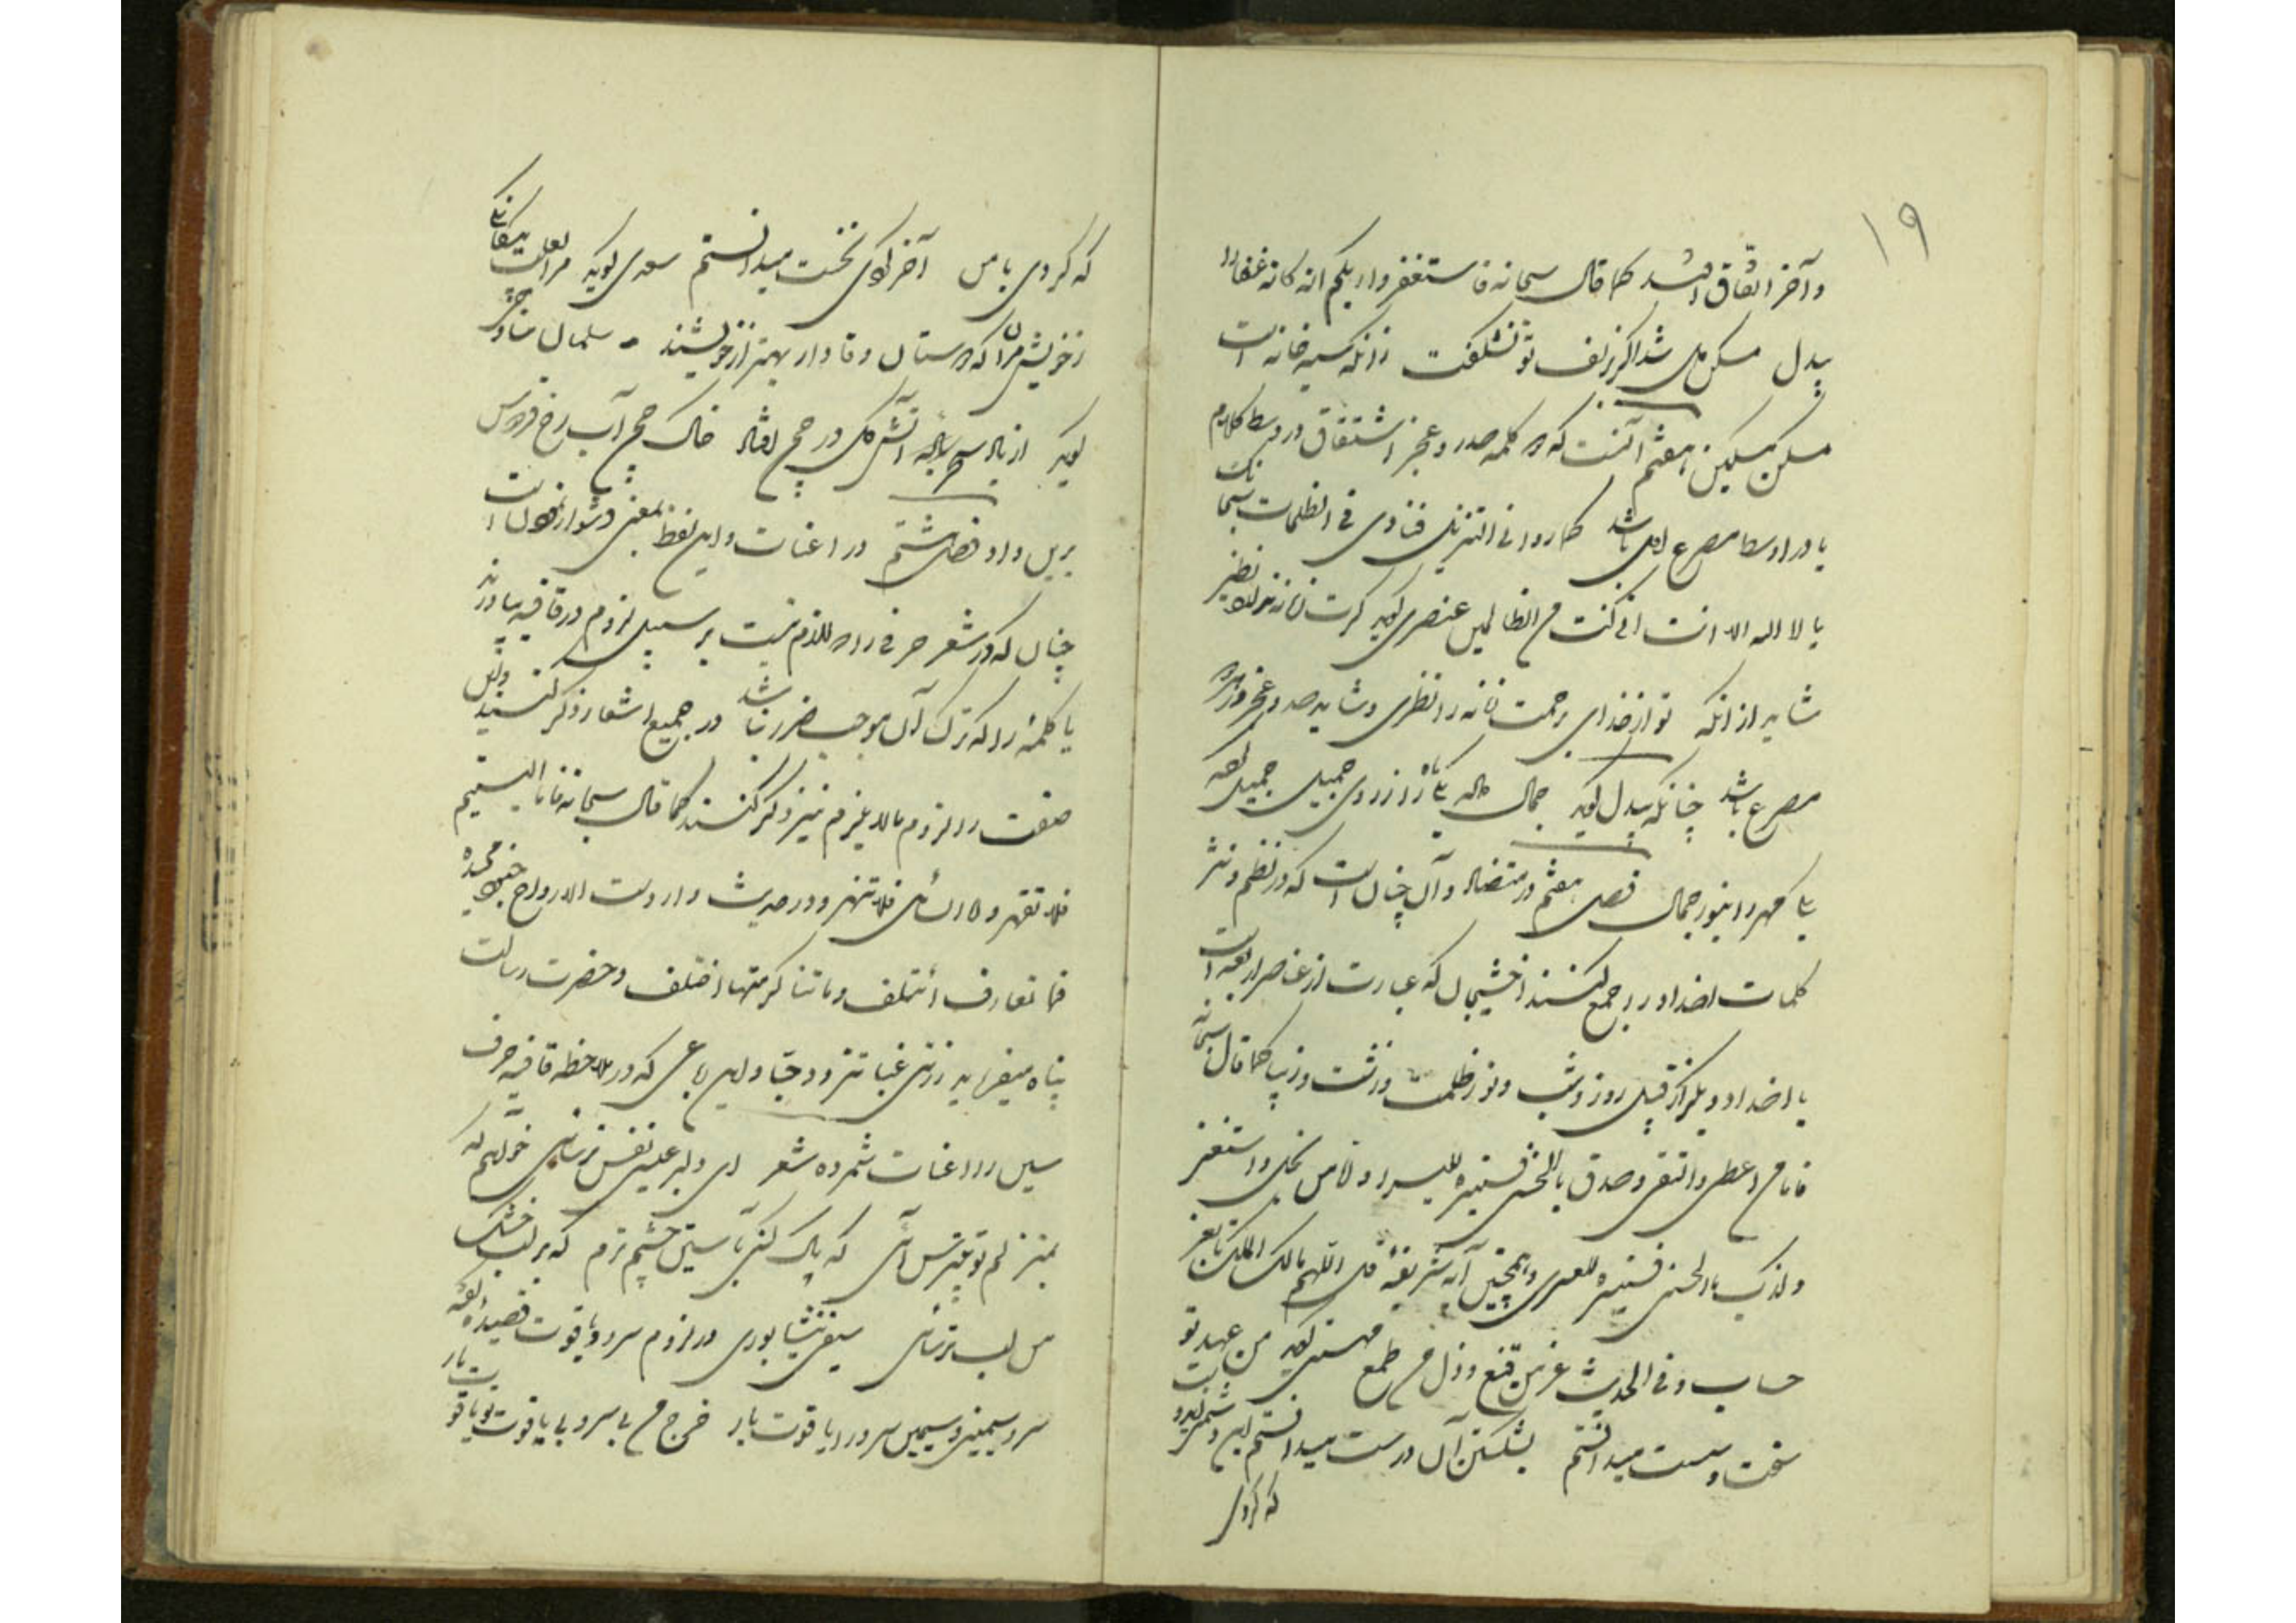 ۱۹
و آخر اتفاق افتد کما قال سبحانه فاستغفروا ربکم انه کانه غفارا
بیدل مسکن دل شد اگر زلف تو نشکفت زانکه سیه خانه است
مسکن مسکین هفتم آنست که کلمه صدر و عجز اشتقاق در وسط کلام
یا در اوسط مصرع اول باشد کما ورد فی التنزیل فنادی فی الظلمات سبحانک
یا لا اله الا انت انی کنت من الظالمین عنصری گوید گرت نظیر
شاید از آنکه تو از خدای رحمت نظری و شاید صدر و عجز در هر دو
مصرع باشد چنانکه بیدل گوید جمال ماه را از روی جمیل جمیل
مهر را بنور جمال فصل هفتم در متضاد و آن چنان است که در نظم و نثر
کلمات اضداد را جمع کنند اخشیجان که عبارت از عناصر اربعه است
یا اضداد دیگر از قبیل روز و شب و نور ظلمت و زشت و زیبا کما قال سبحانه
فاما من اعطی و اتقی و صدق بالحسنی فسنیسره للیسرا و اما من بخل و استغنی
و کذب بالحسنی فسنیسره للعسری و همچنین آیه شریفه قل اللهم مالک الملک تا بغیر
حساب و فی الحدیث عز من قنع و ذل من طمع مهستی گوید من عهد تو
سخت سست میدانستم بشکستن آن درست میدانستم این دشمنی ای دوست
که کردی
که کردی با من آخر کردی نخست میدانستم سعدی گوید مرا بعلت بیگانگی
ز خویش مران که دوستان وفادار بهتر از خویشند سلمان ساوجی
گوید از باد صبح آتش گل در چمن خاک چمن آب رخ فردوس
برین داد فصل هشتم در اعنات و این لفظ بمعنی دشوار است
چنان که در شعر حرفی را که لازم نیست بر سبیل لزوم در قافیه بیاورند
یا کلمهٔ را که ترک آن موجب ضرر نباشد در جمیع اشعار ذکر کنند و این
صفت را لزوم ما لا یلزم نیز ذکر کنند کما قال سبحانه فاما الیتیم
فلا تقهر و اما السائل فلا تنهر و در حدیث وارد است الارواح جنود مجنده
فما تعارف ائتلف و ما تناکر منها اختلف و حضرت رسالت
پناه میفرماید زرنی غبا تزدد حبا و این رباعی که در ملاحظه قافیه حرف
سین را اعنات شمرده شعر ای دلبر عیسی نفس ترسائی خواهم که
بمنزلم تو بی ترس آئی که پاک کنی بآستین چشم ترم که بر لب خشک
من لب تر سائی سیفی نیشابوری در لزوم سرو و یاقوت قصیده گفته
سرو سیمینی و سیمین سرو را یاقوت بار خرج من بی سرو بی یاقوت تو یاقوت بار